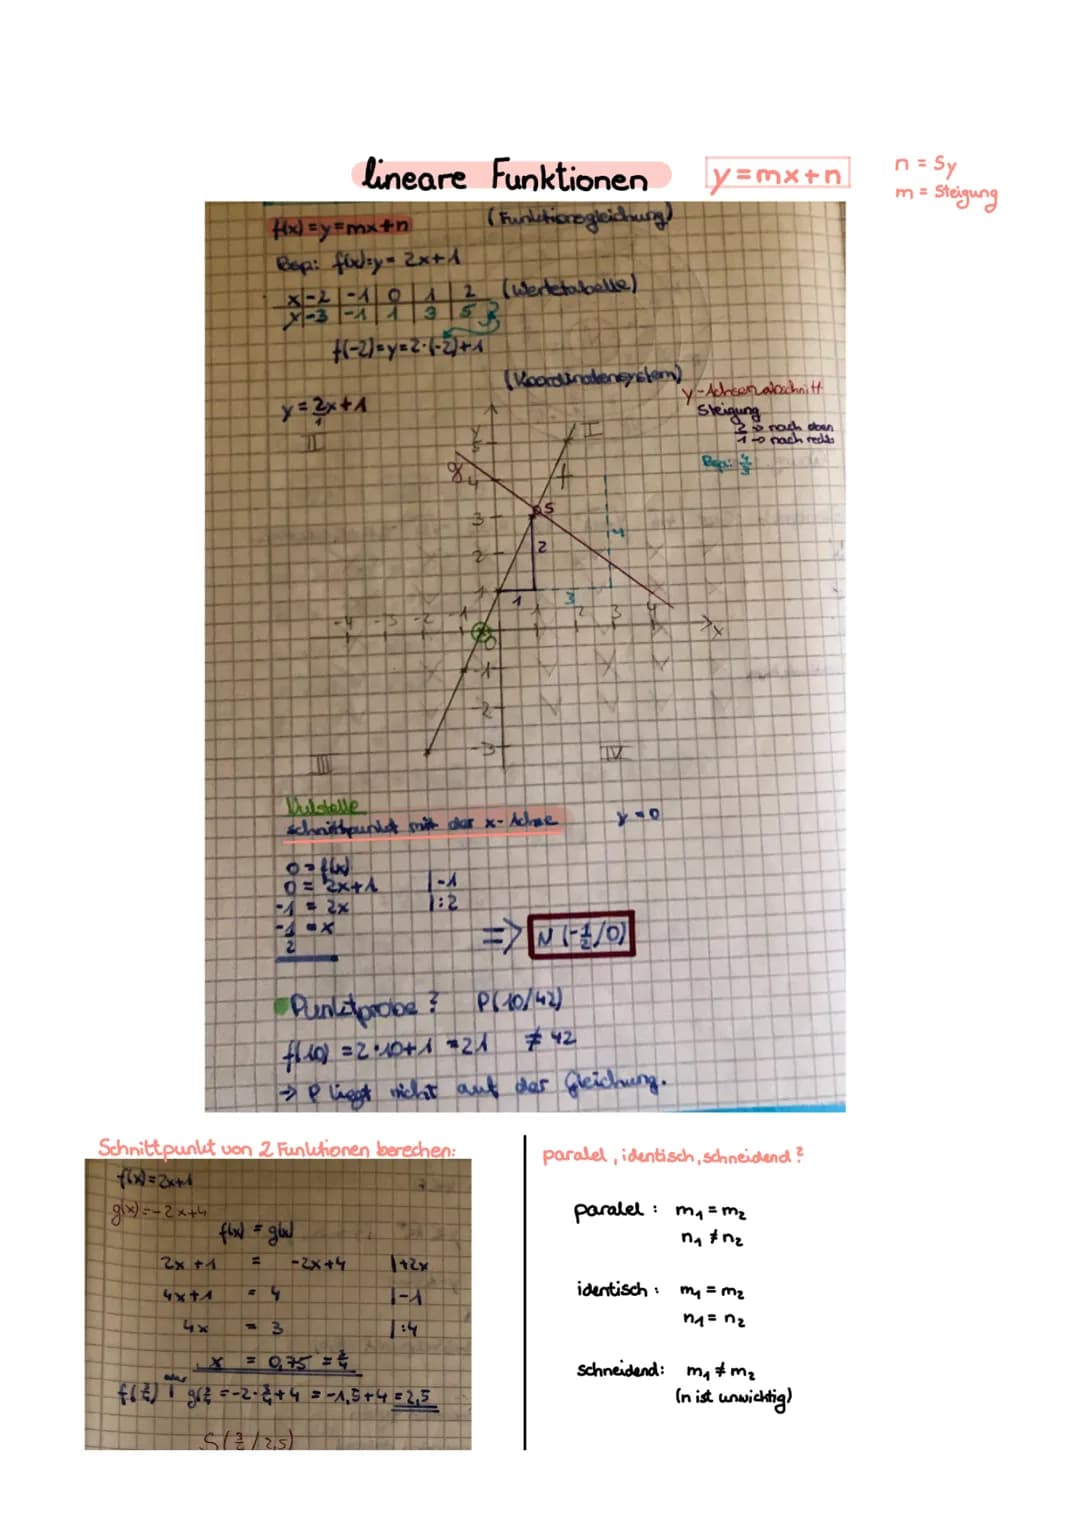 lineare Funktionen
y=mx+n
n = Sy
m = Steigung
f(x)=y=mx+n (Funktionsgleichung)
Bsp: f(x)=y= 2x+1
x -2 -1 0 1 2 (Wertetabelle)
y -3 -1 1 3 5
f(-2)=y=2·(-2)+1
(Koordinatensystem)
y = 2/1 x+1
y-Achsenabschnitt
Steigung
2 → nach oben
1 → nach rechts
Bsp: 4/3
II
I
y
5
g
4
f
3
S
2
2
4
1
1
3
-4 -3 -2 -1 0 1 2 3 4
x
-1
-2
-3
III
IV
Nullstelle
Schnittpunkt mit der x-Achse y=0
0 = f(x)
0 = 2x+1 |-1
-1 = 2x |:2
-1/2 = x
=> N (-1/2/0)
Punktprobe? P(10/42)
f(10) = 2·10+1 = 21 ≠ 42
→ P liegt nicht auf der Gleichung.
Schnittpunkt von 2 Funktionen berechen:
f(x)=2x+1
g(x)=-2x+4
f(x) = g(x)
2x+1 = -2x+4 |+2x
4x+1 = 4 |-1
4x = 3 |:4
x = 0,75 = 3/4
f(3/4) oder g(3/4 = -2·3/4+4 = -1,5+4 = 2,5
S(3/4/2,5)
paralel, identisch, schneidend?
paralel : m₁ = m₂
n₁ ≠ n₂
identisch : m₁ = m₂
n₁ = n₂
schneidend: m₁ ≠ m₂
(n ist unwichtig)